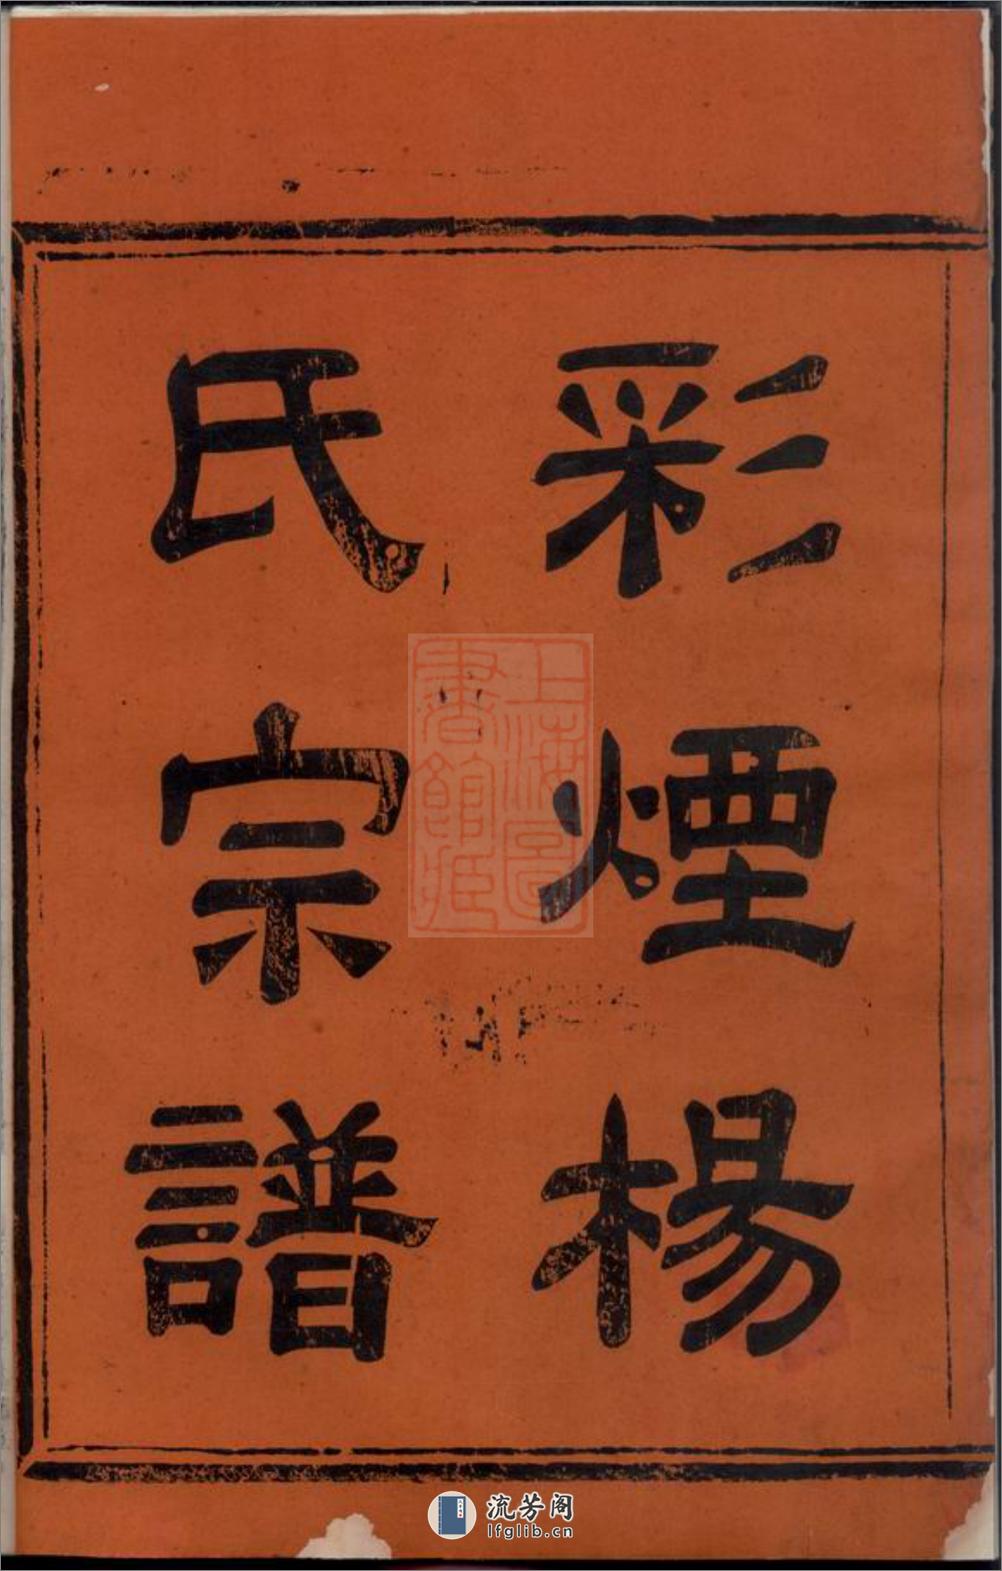 彩煙楊
氏宗譜
上海圖書館藏
流芳阁
lfglib.cn